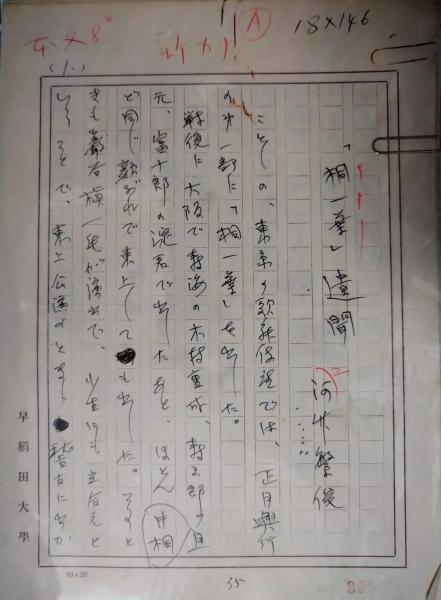 A
18×146
(1.)
「桐一葉」遺聞
河竹繁俊
ことしの、東京の歌舞伎座では、正月興行
の第一部に「桐一葉」を出した。
戦後に大阪で寿海の木村重成、寿三郎の且
元、富十郎の淀君で出したあと、ほとん
ど同じ顔ぶれで東上しても出した。そのと
きも巌谷槇一氏が演出で、小生にも立合えと
いうことで、東上公演のときは稽古に出か
片桐
早稲田大學
10×20
35